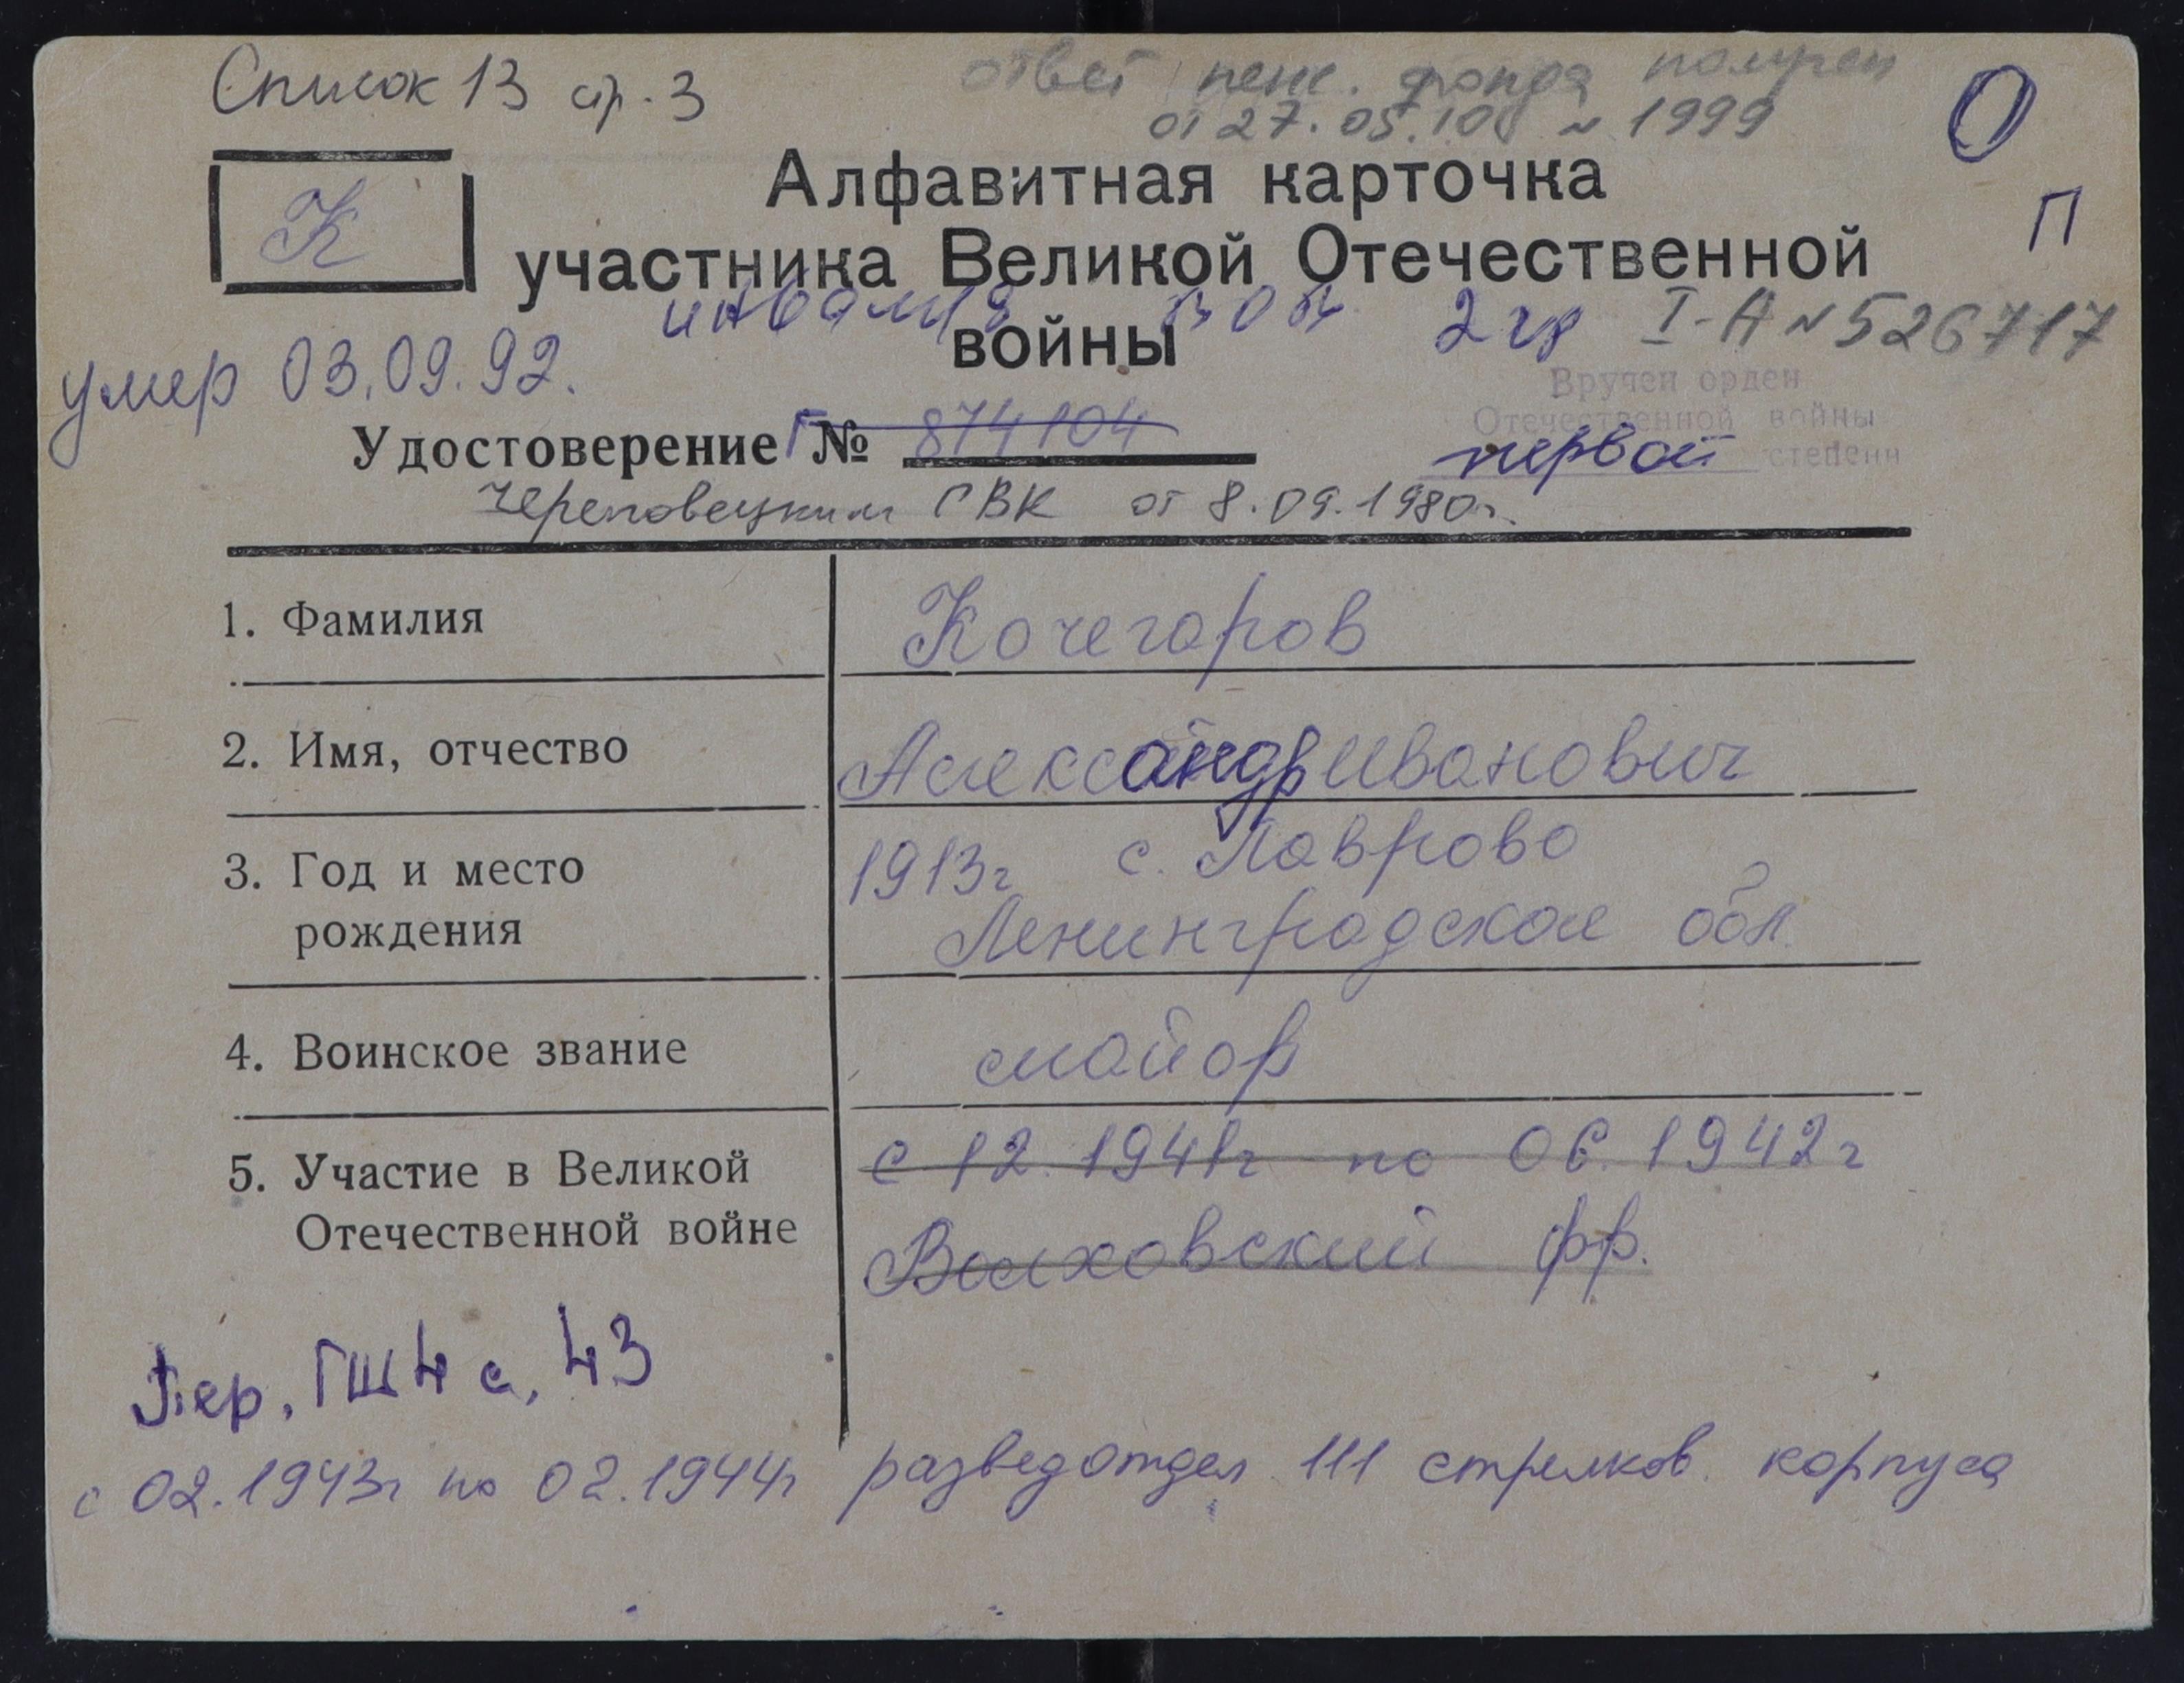 Список 13 стр. 3
ответ пенс. фонда получен
от 27.05.10 № 1999
О
К
П
Алфавитная карточка
участника Великой Отечественной
войны
инвалид ВОВ 2 гр
I-А № 526717
умер 03.09.92.
Вручен орден
Отечественной войны
первой степени
Удостоверение Г № 874104
Череповецким ГВК от 8.09.1980г.
1. Фамилия Кочегаров
2. Имя, отчество Александр Иванович
3. Год и место 1913г с. Лаврово
рождения Ленинградская обл.
4. Воинское звание майор
5. Участие в Великой с 12.1941г по 06.1942г
Отечественной войне Волховский фр.
Пер. ГШ 4 с. 43
с 02.1943г по 02.1944г разведотдел 111 стрелков. корпуса